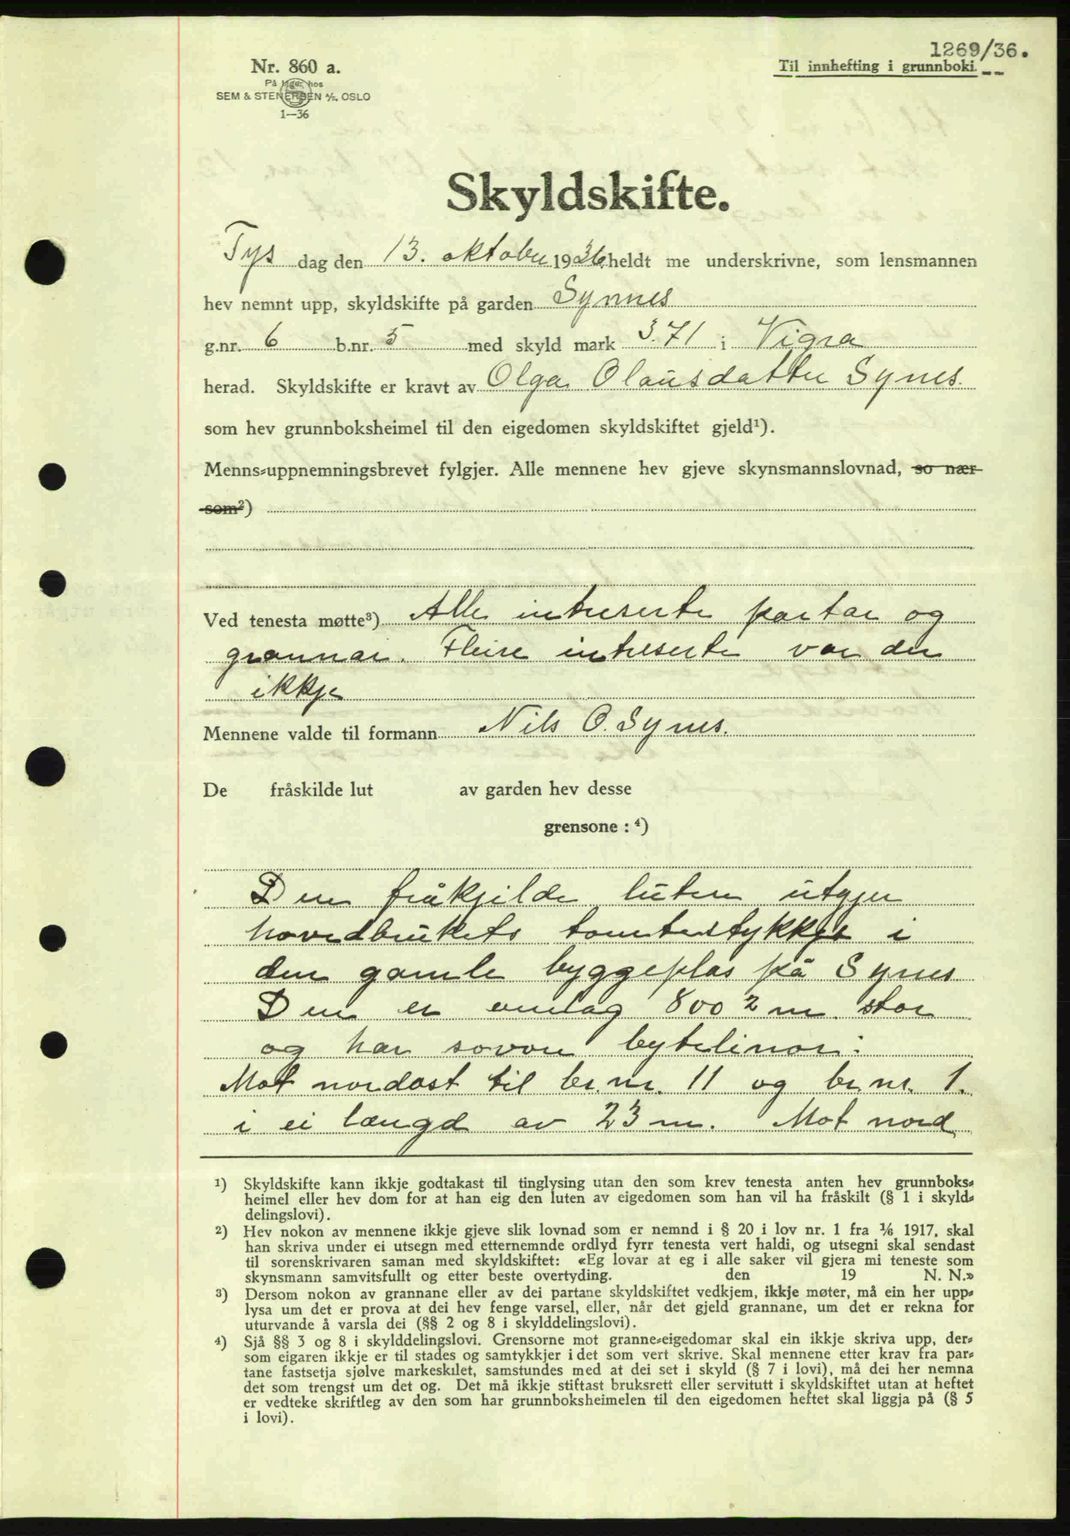 1269/36.
Til innhefting i grunnboki.
Nr. 860 a.
På lager hos
SEM & STENERSEN A/S, OSLO
1—36
Skyldskifte.
Tys dag den 13. oktober 1936 heldt me underskrivne, som lensmannen
hev nemnt upp, skyldskifte på garden Synnes
g.nr. 6 b.nr. 5 med skyld mark 3.71 i Vigra
herad. Skyldskifte er kravt av Olga Olausdatter Synes.
som hev grunnboksheimel til den eigedomen skyldskiftet gjeld¹).
Menns-uppnemningsbrevet fylgjer. Alle mennene hev gjeve skynsmannslovnad, so nær
som²)
Ved tenesta møtte³) Alle intreserte partar og
grannar. Fleire intreserte var der
ikkje
Mennene valde til formann Nils O. Synes.
De fråskilde lut av garden hev desse
grensone : ⁴)
Den fråkjilde luten utgjer
hovedbrukets tomtestykkje i
den gamle byggeplas på Synes
Den er omlag 800 2 m. stor
og har sovore bytelinor:
Mot nordost til br.nr. 11 og br.nr. 1.
i ei længd av 23 m. Mot nord
¹) Skyldskifte kann ikkje godtakast til tinglysing utan den som krev tenesta anten hev grunnboks-
heimel eller hev dom for at han eig den luten av eigedomen som han vil ha fråskilt (§ 1 i skyld-
delingslovi).
²) Hev nokon av mennene ikkje gjeve slik lovnad som er nemnd i § 20 i lov nr. 1 fra 1/6 1917, skal
han skriva under ei utsegn med etternemnde ordlyd fyrr tenesta vert haldi, og utsegni skal sendast
til sorenskrivaren saman med skyldskiftet: «Eg lovar at eg i alle saker vil gjera mi teneste som
skynsmann samvitsfullt og etter beste overtyding. den 19 N. N.»
³) Dersom nokon av grannane eller av dei partane skyldskiftet vedkjem, ikkje møter, må ein her upp-
lysa um det er prova at dei hev fenge varsel, eller, når det gjeld grannane, um det er rekna for
uturvande å varsla dei (§§ 2 og 8 i skylddelingslovi).
⁴) Sjå §§ 3 og 8 i skylddelingslovi. Grensorne mot granne-eigedomar skal ein ikkje skriva upp, der-
som eigaren ikkje er til stades og samtykkjer i det som vert skrive. Skal mennene etter krav fra par-
tane fastsetja sjølve markeskilet, samstundes med at dei set i skyld (§ 7 i lovi), må dei her nemna
det som trengst um det og. Det må ikkje stiftast bruksrett eller servitutt i skyldskiftet utan at heftet
er vedteke skriftleg av den som har grunnboksheimelen til den eigedomen heftet skal liggja på (§ 5
i lovi).